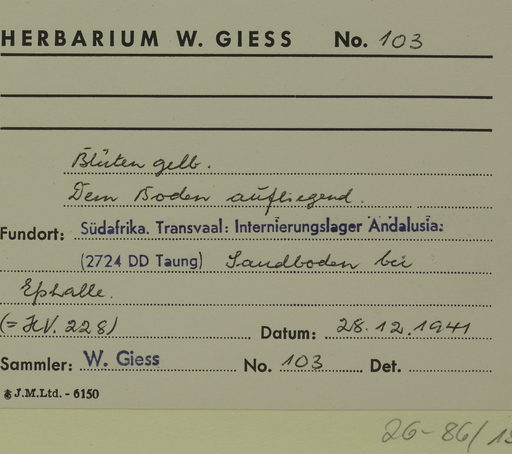 HERBARIUM W. GIESS No. 103
Blüten gelb.
Dem Boden aufliegend.
Fundort: Südafrika. Transvaal: Internierungslager Andalusia:
(2724 DD Taung) Sandboden bei
Ephalle.
(= HV. 228) Datum: 28.12.1941
Sammler: W. Giess No. 103 Det.
J.M.Ltd. - 6150
26-86/